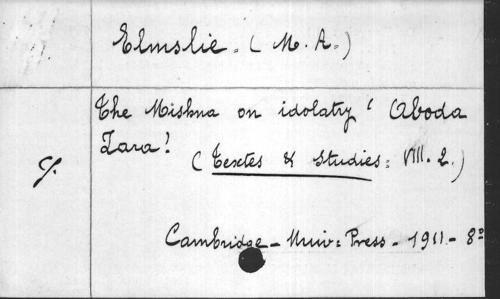 Elmslie. ( M. A.)
The Mishna on idolatry ' Aboda
Zara!
( Textes & Studies: VIII. 2.)
Cambridge - Univ: Press - 1911 - 8º